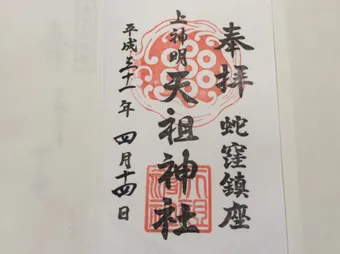 奉拝
蛇窪鎮座
上神明
天祖神社
平成三十一年
四月十四日